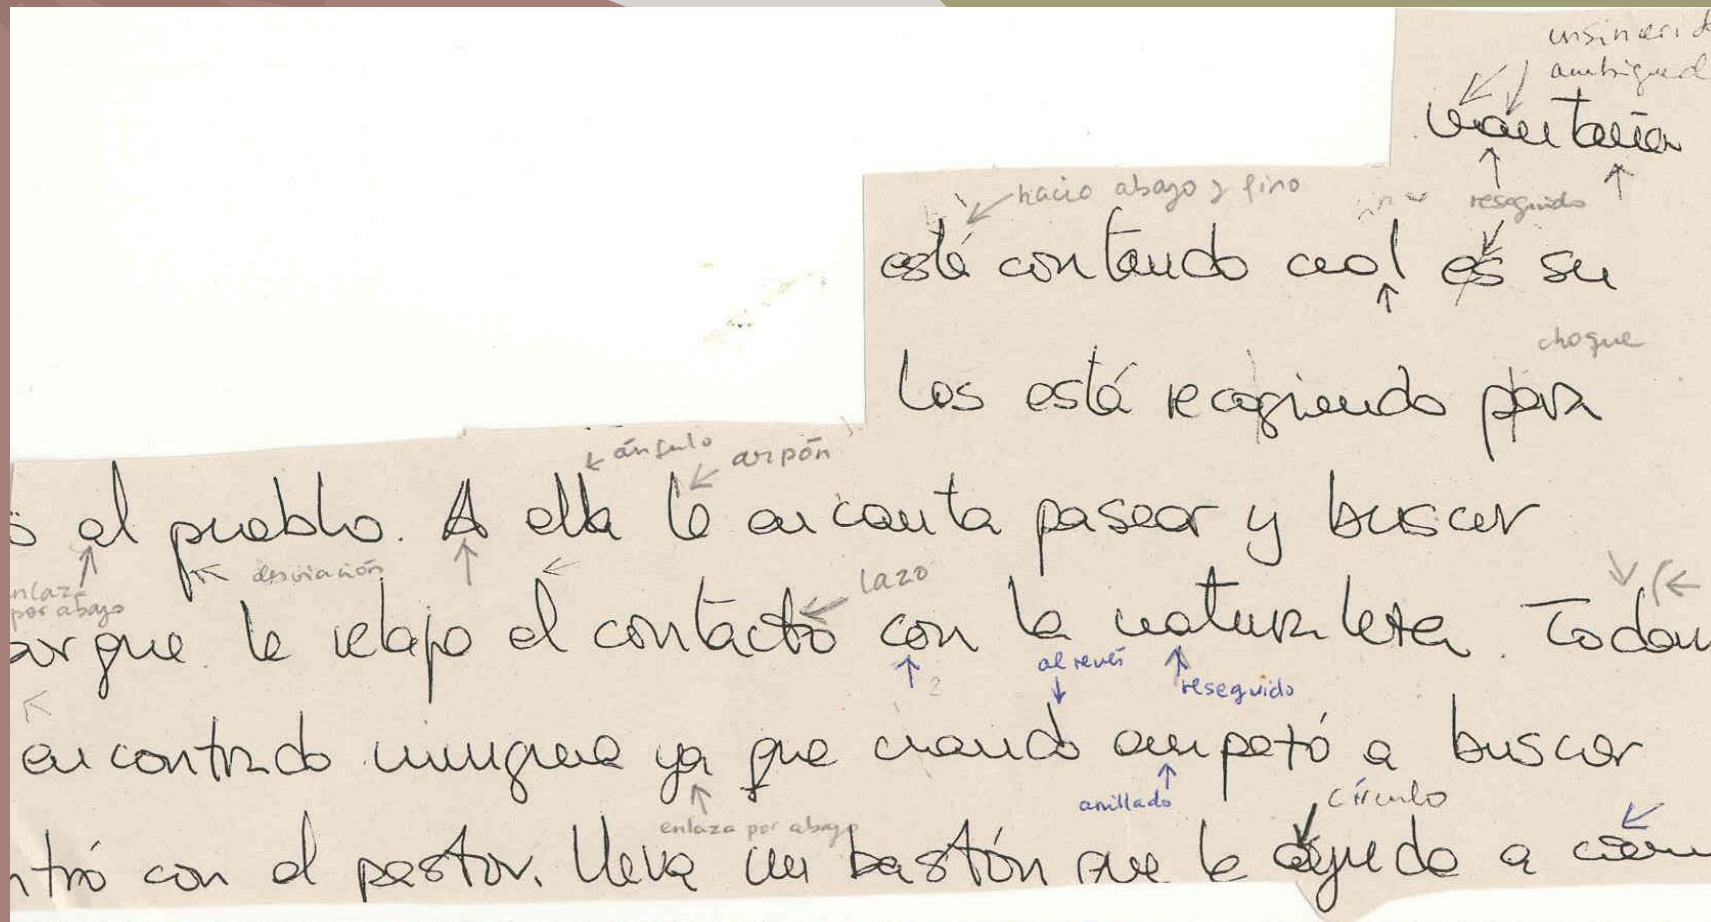 ambigued
montaña
hacia abajo y fino
reseguido
está contando cual es su
choque
los está recogiendo para
ángulo
arpón
al pueblo. A ella le encanta pasear y buscar
enlaza
por abajo
desviación
lazo
porque le relaja el contacto con la naturaleza. Todav
al revés
2
reseguido
encontrado ninguna ya que cuando empezó a buscar
anillado
círculo
enlaza por abajo
ntró con el pastor. Lleva un bastón que le ayuda a